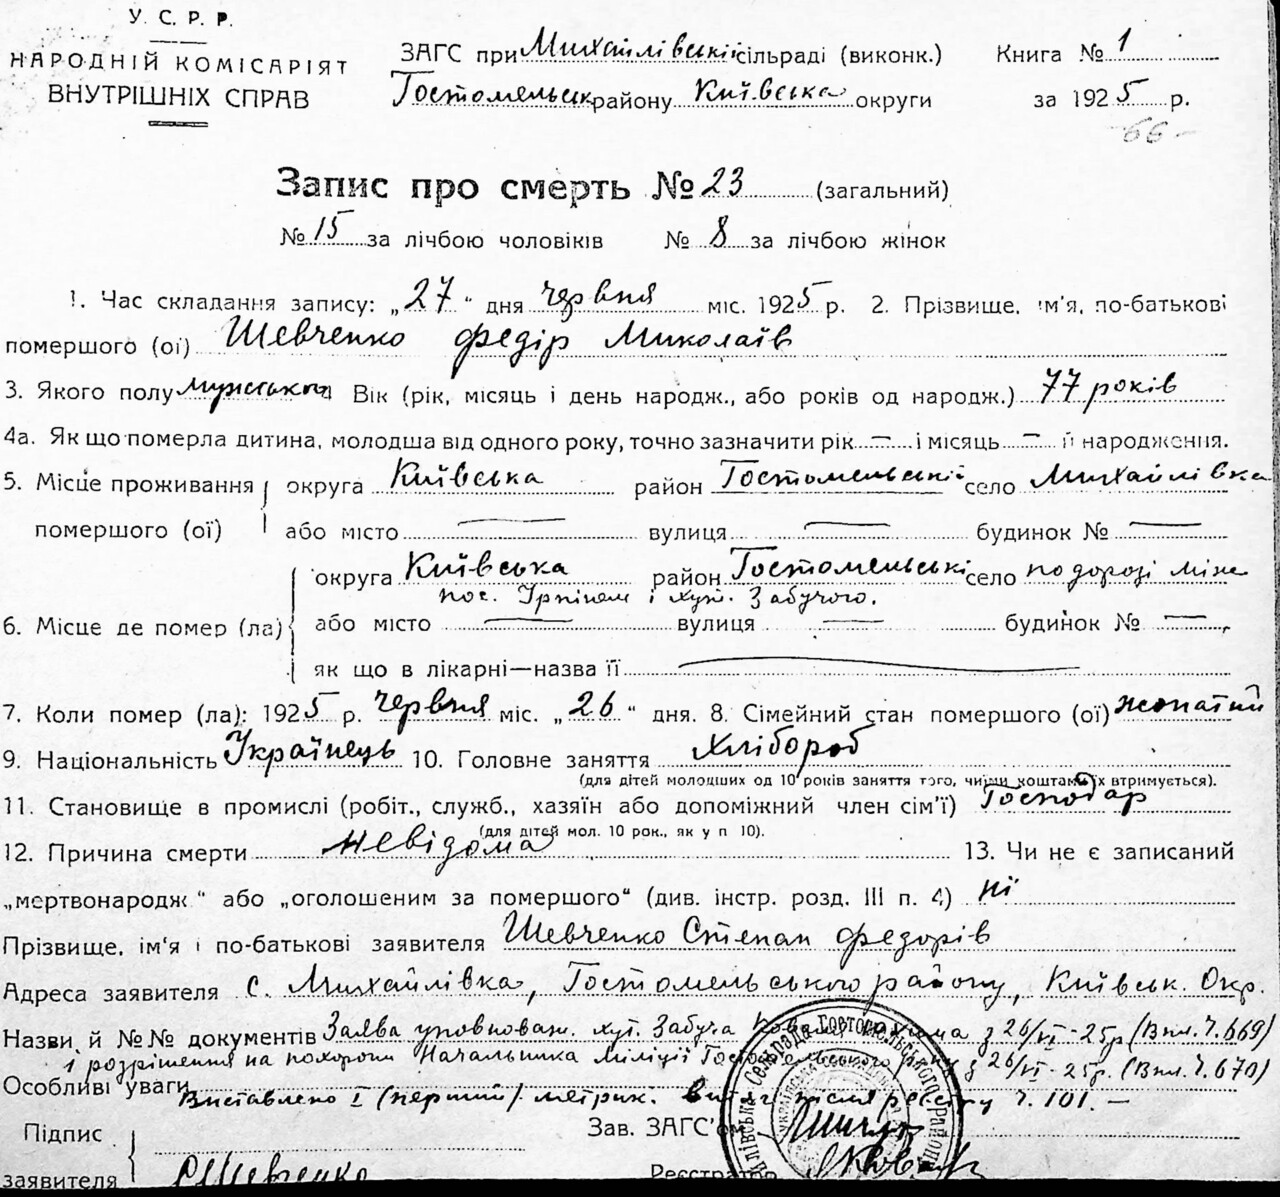 У. С. Р. Р.
НАРОДНІЙ КОМІСАРІЯТ
ВНУТРІШНІХ СПРАВ
ЗАГС при Михайлівській сільраді (виконк.)
Гостомельськ району Київська округи
Книга № 1
за 1925 р.
66-
Запис про смерть № 23 (загальний)
№ 15 за лічбою чоловіків № 8 за лічбою жінок
1. Час складання запису: „27" дня червня міс. 1925 р. 2. Прізвище, ім'я, по-батькові
помершого (ої) Шевченко Федір Миколаїв
3. Якого полу мужського 4 Вік (рік, місяць і день народж., або років од народж.) 77 років
4а. Як що померла дитина, молодша від одного року, точно зазначити рік — і місяць — її народження.
5. Місце проживання округа Київська район Гостомельський село Михайлівка
помершого (ої) або місто — вулиця — будинок № —
округа Київська район Гостомельські село по дорозі між
пос. Ірпінем і хут. Забучого.
6. Місце де помер (ла) або місто — вулиця — будинок № —
як що в лікарні—назва її —
7. Коли помер (ла): 1925 р. червня міс. „26" дня. 8. Сімейний стан помершого (ої) жонатий
9. Національність Українець 10. Головне заняття Хлібороб
(для дітей молодших од 10 років заняття того, чиїми коштами їх втримується).
11. Становище в промислі (робіт., служб., хазяїн або допоміжний член сім'ї) Господар
(для дітей мол. 10 рок., як у п 10).
12. Причина смерти невідома 13. Чи не є записаний
„мертвонародж" або „оголошеним за помершого" (див. інстр. розд. III п. 4) ні
Прізвище, ім'я і по-батькові заявителя Шевченко Степан Федорів
Адреса заявителя с. Михайлівка, Гостомельського району, Київськ. Окр.
Назви й №№ документів Заява уповноваж. хут. Забуча з 26/VI-25р (Вх.ч.669)
і розрішення на похорони Начальника Міліції з 26/VI-25р. (Вх.ч.670)
Особливі уваги Виставлено I (перший) метрик. ч. 101.—
Підпис
заявителя С Шевченко
Зав. ЗАГС'ом
Реєстратор